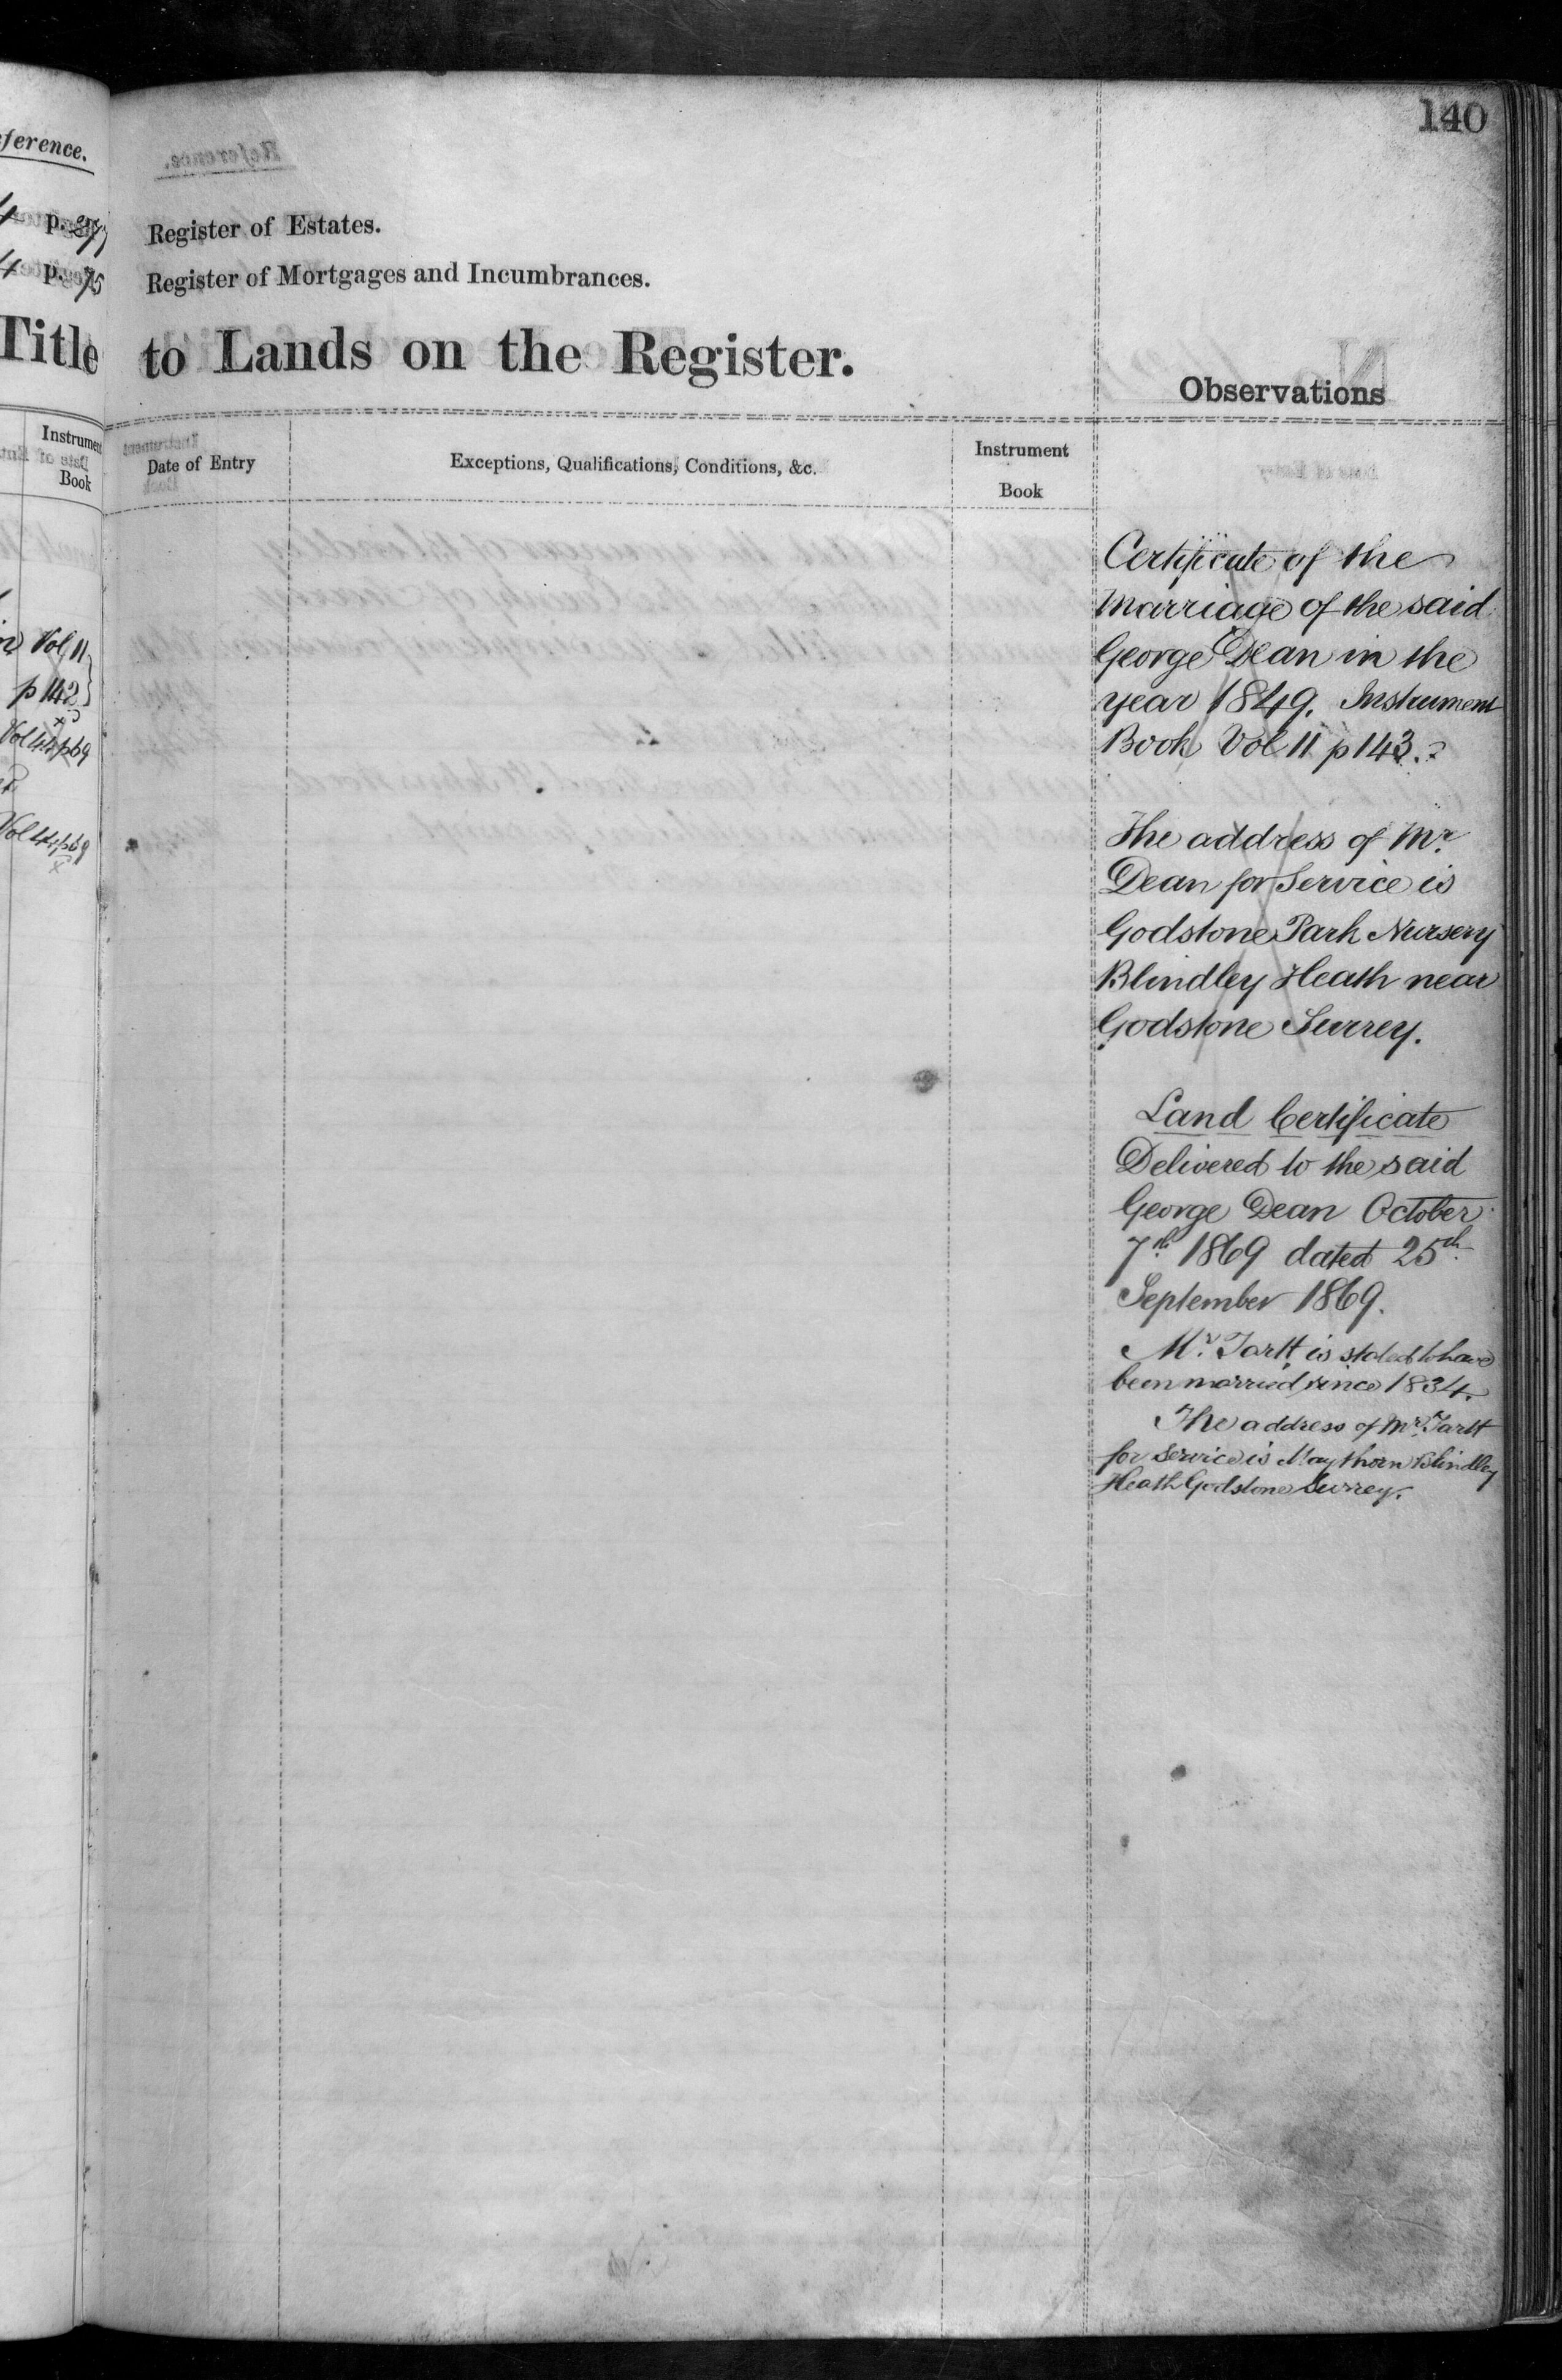 140
Register of Estates.
Register of Mortgages and Incumbrances.
to Lands on the Register.
Observations
Date of Entry
Exceptions, Qualifications, Conditions, &c.
Instrument
Book
Certificate of the
Marriage of the said
George Dean in the
year 1849. Instrument
Book Vol 11 p 143.
The address of Mr.
Dean for Service is
Godstone Park Nursery
Blindley Heath near
Godstone Surrey.
Land Certificate
Delivered to the said
George Dean October
7th 1869 dated 25th
September 1869.
Mr. Tartt is stated to have
been married since 1834.
The address of Mr. Tartt
for Service is Maythorn Blindley
Heath Godstone Surrey.
ference.
p.
p. 75
Title
Instrument
Book
Vol 11
p 142
Vol 44 p 69
Vol 44 p 69